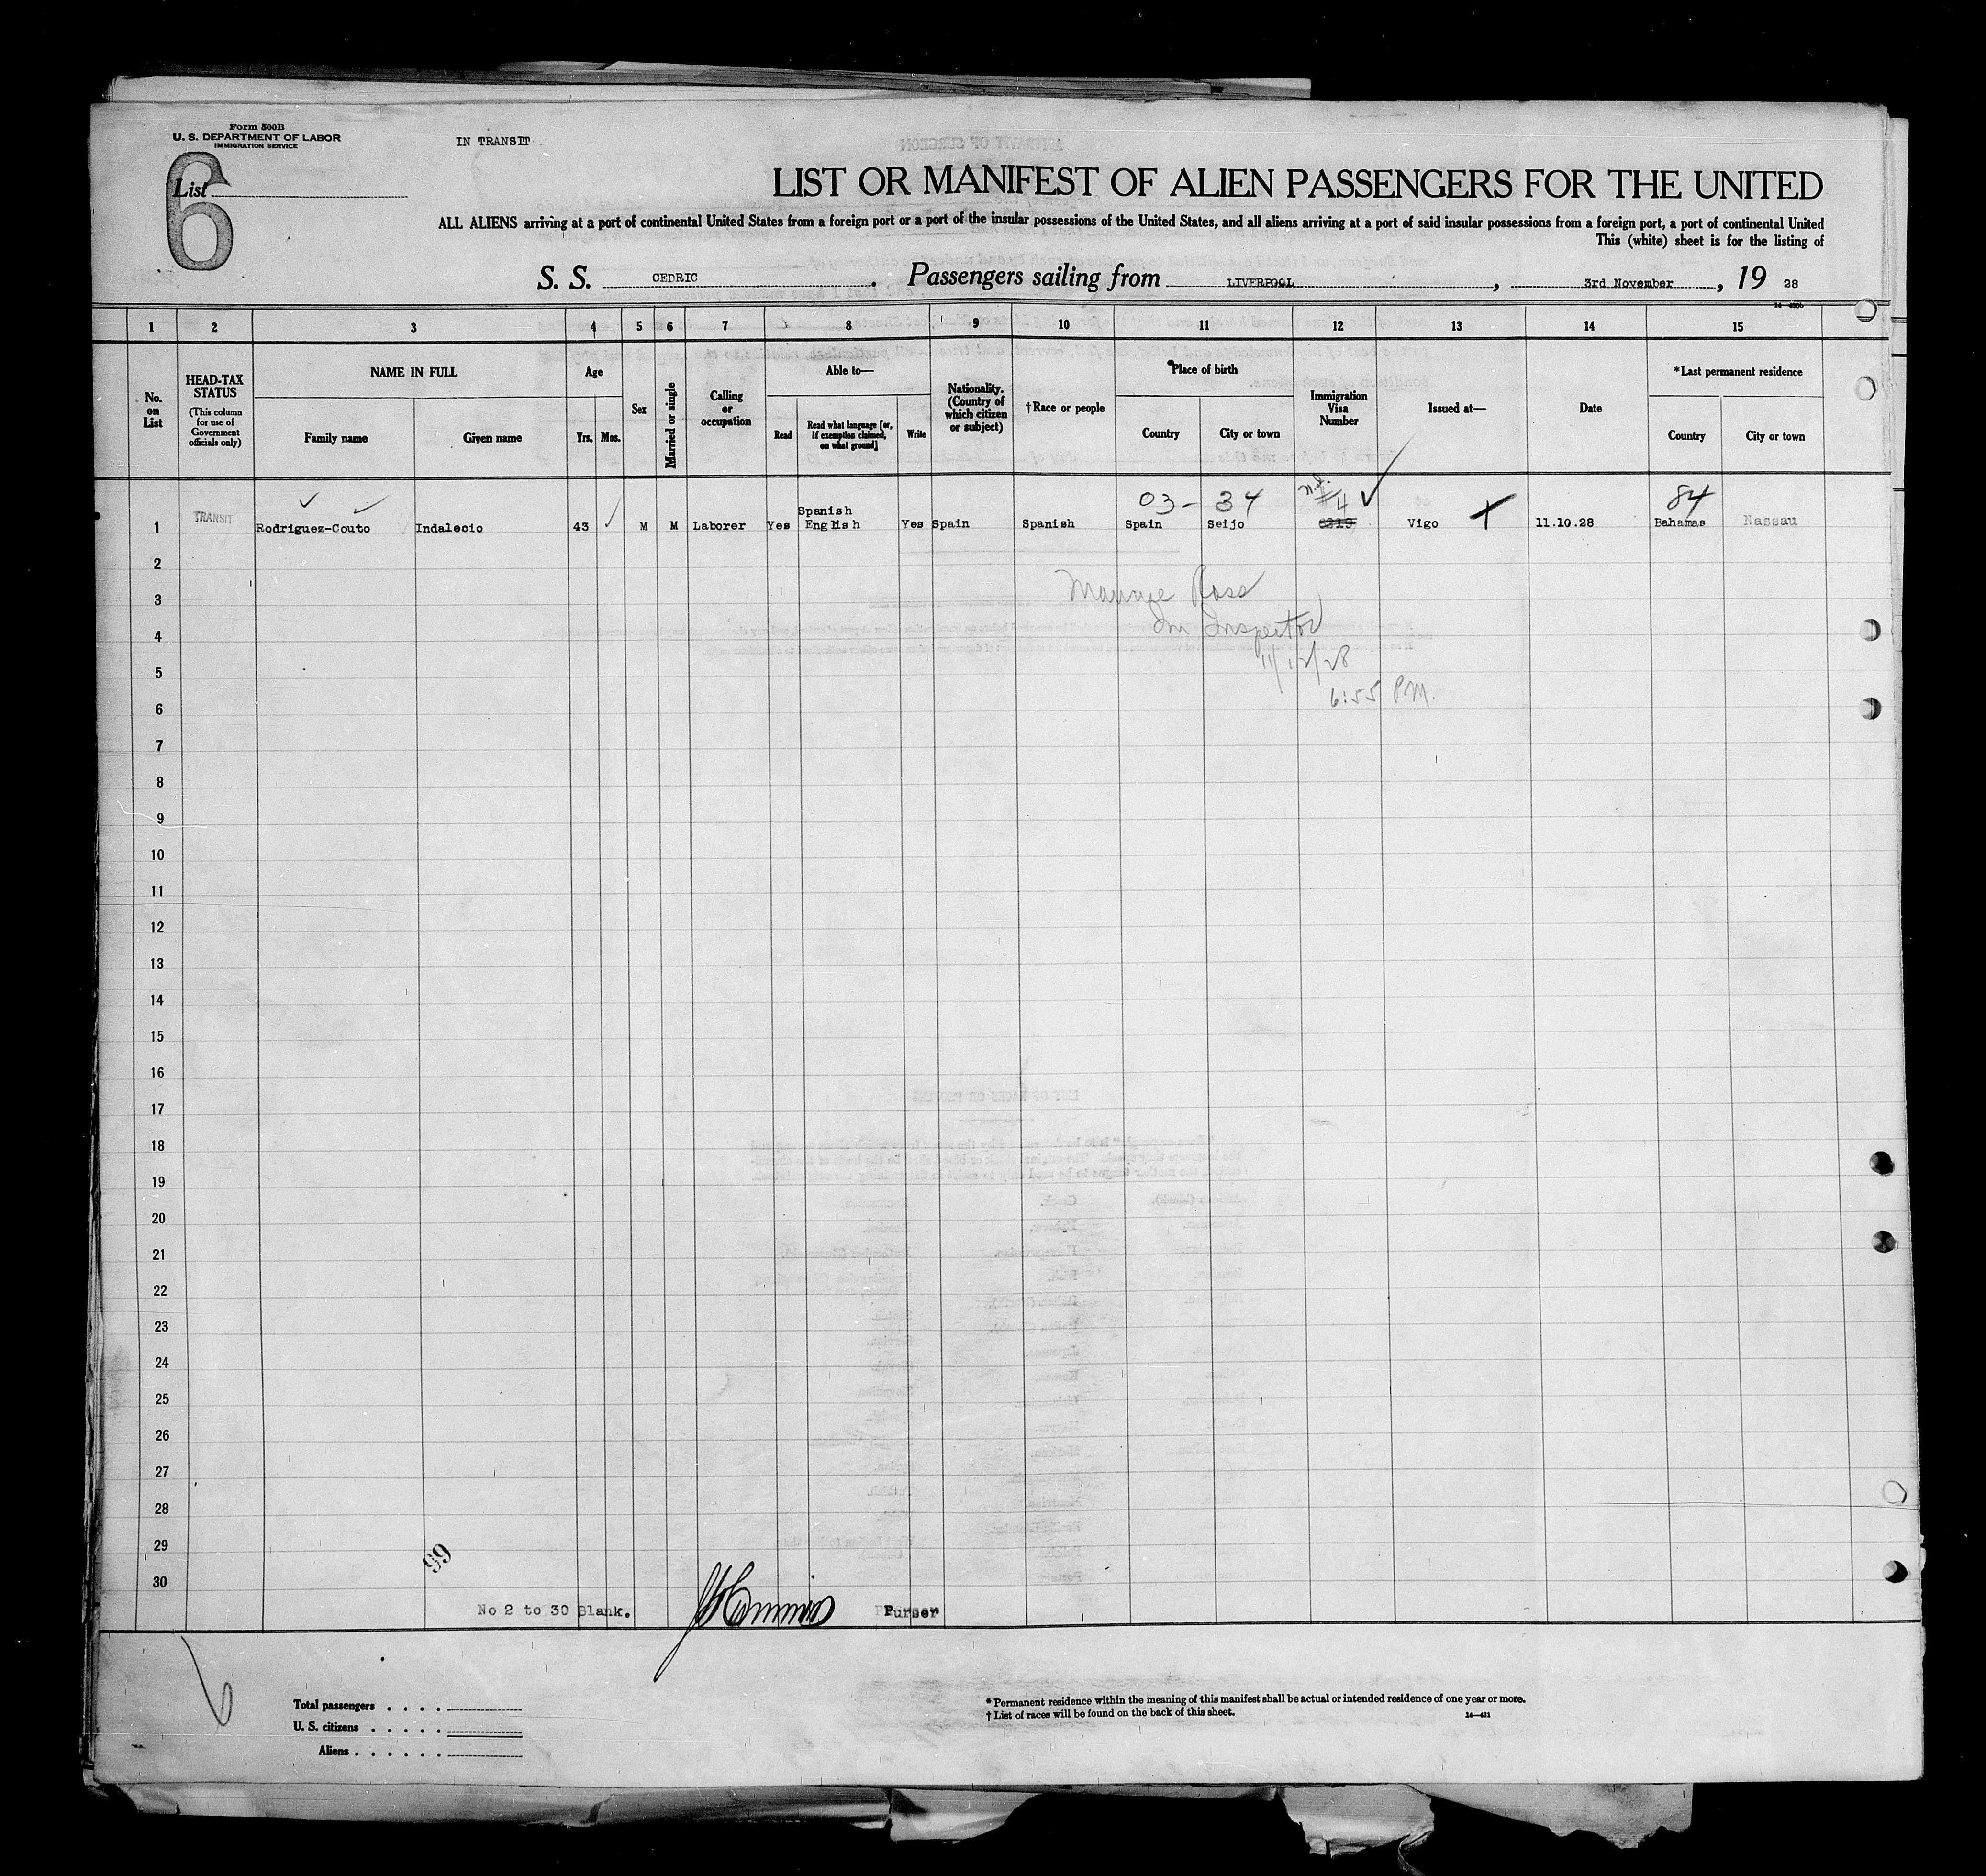 Form 500B
U. S. DEPARTMENT OF LABOR
IMMIGRATION SERVICE
IN TRANSIT
List
6
LIST OR MANIFEST OF ALIEN PASSENGERS FOR THE UNITED
ALL ALIENS arriving at a port of continental United States from a foreign port or a port of the insular possessions of the United States, and all aliens arriving at a port of said insular possessions from a foreign port, a port of continental United
This (white) sheet is for the listing of
S. S. CEDRIC. Passengers sailing from LIVERPOOL, 3rd November, 19 28
1 2 3 4 5 6 7 8 9 10 11 12 13 14 15
No. on List
HEAD-TAX STATUS
(This column for use of Government officials only)
NAME IN FULL
Family name
Given name
Age
Yrs. Mos.
Sex
Married or single
Calling or occupation
Able to—
Read
Read what language [or, if exemption claimed, on what ground]
Write
Nationality. (Country of which citizen or subject)
†Race or people
*Place of birth
Country
City or town
Immigration Visa Number
Issued at—
Date
*Last permanent residence
Country
City or town
03- 34 #4 84
1 TRANSIT Rodriguez-Couto Indalecio 43 M M Laborer Yes Spanish English Yes Spain Spanish Spain Seijo Vigo 11.10.28 Bahamas Nassau
2
3
4
5
6
7
8
9
10
11
12
13
14
15
16
17
18
19
20
21
22
23
24
25
26
27
28
29
30
Ross
Im Inspector
11/12/28
6:55 P.M.
99
No 2 to 30 Blank.
Purser
Total passengers . . . .
U. S. citizens . . . . .
Aliens . . . . . .
* Permanent residence within the meaning of this manifest shall be actual or intended residence of one year or more.
† List of races will be found on the back of this sheet.
14—431